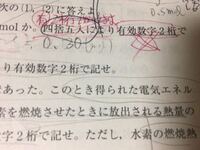 次の(1)、(2)に答えよ
molか。四捨五入により有効数字2桁で
0.30
より有効数字2桁で記せ。
であった。このとき得られた電気エネル
素を燃焼させたときに放出される熱量の
字2桁で記せ。ただし、水素の燃焼熱